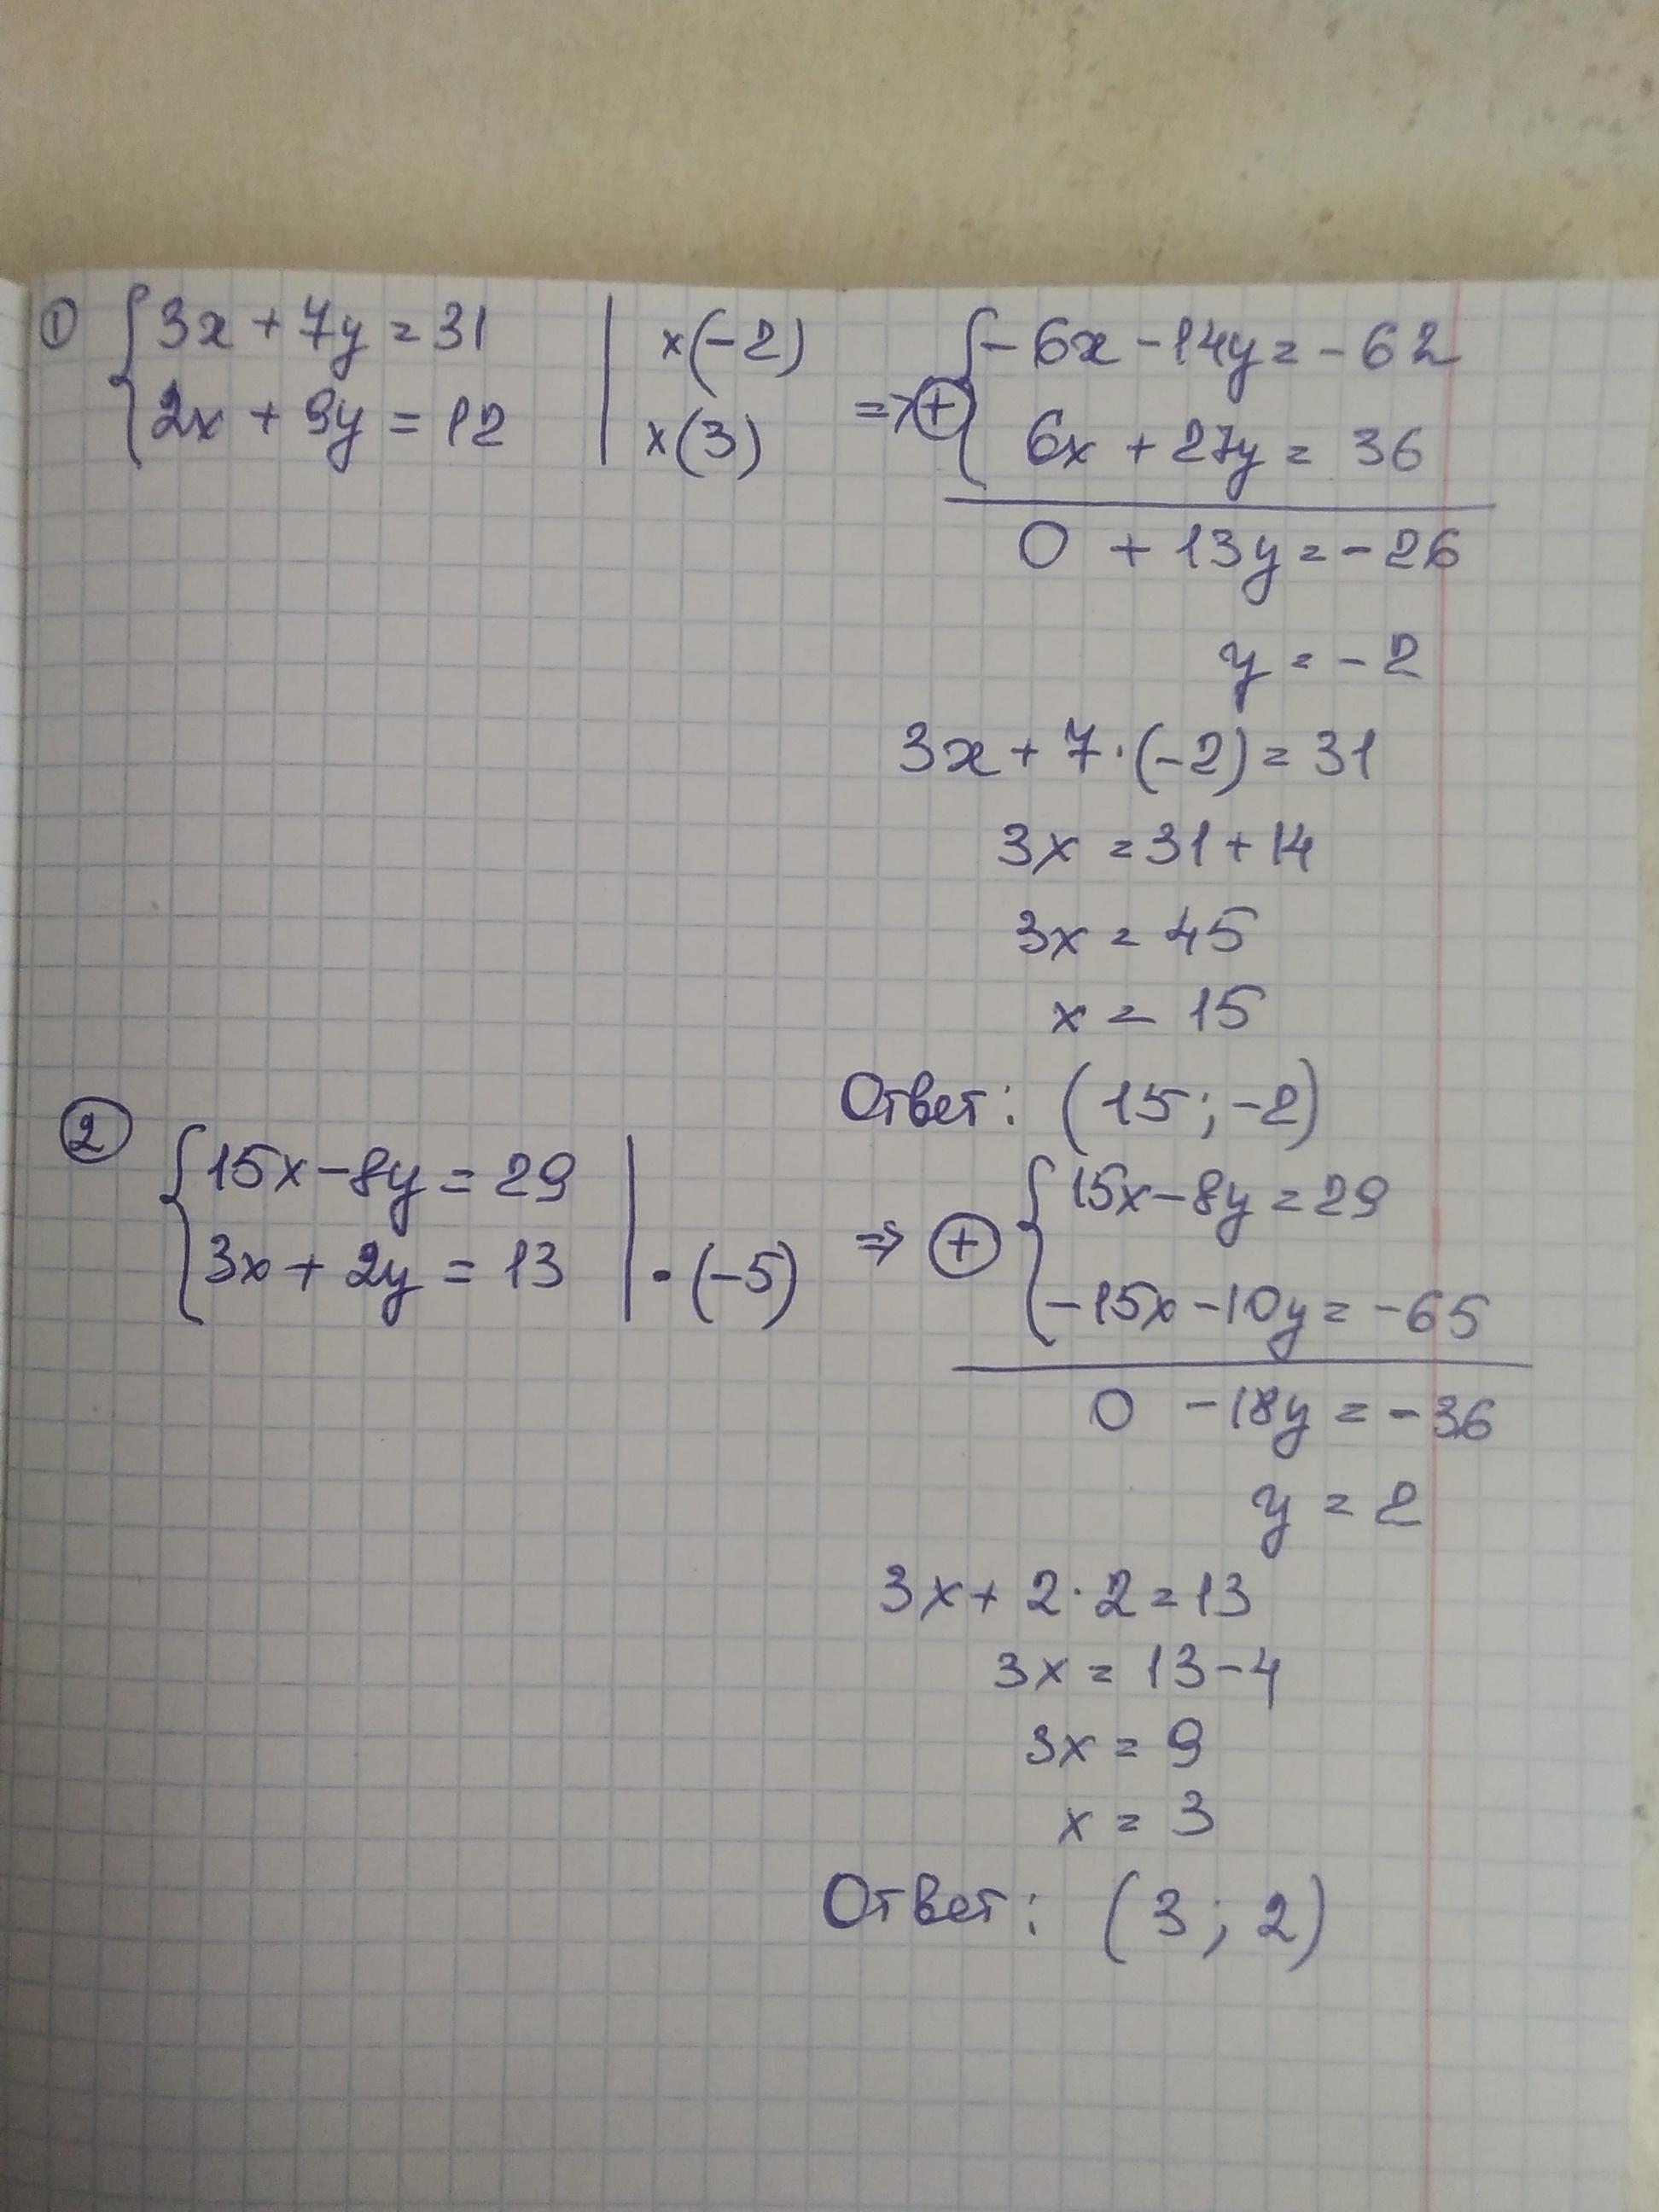 ① { 3x + 7y = 31 | x(-2) => ⊕ { -6x - 14y = -62
2x + 9y = 12 | x(3) 6x + 27y = 36
0 + 13y = -26
y = -2
3x + 7·(-2) = 31
3x = 31 + 14
3x = 45
x = 15
Ответ: (15; -2)
② { 15x - 8y = 29 | => ⊕ { 15x - 8y = 29
3x + 2y = 13 | ·(-5) -15x - 10y = -65
0 - 18y = -36
y = 2
3x + 2·2 = 13
3x = 13 - 4
3x = 9
x = 3
Ответ: (3; 2)